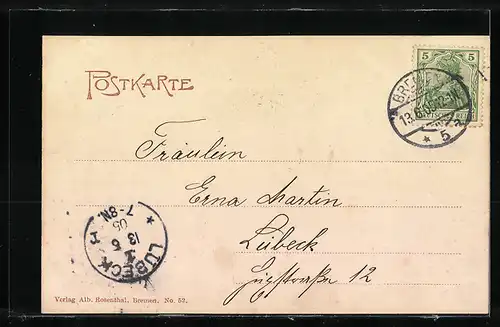 POSTKARTE
5 5
BREMEN
13.6.05.12-1N.
* 5 a
Fräulein
Erna Martin
Lübeck
12
LÜBECK
13 6
05
7-8N.
Verlag Alb. Rosenthal, Bremen. No. 52.